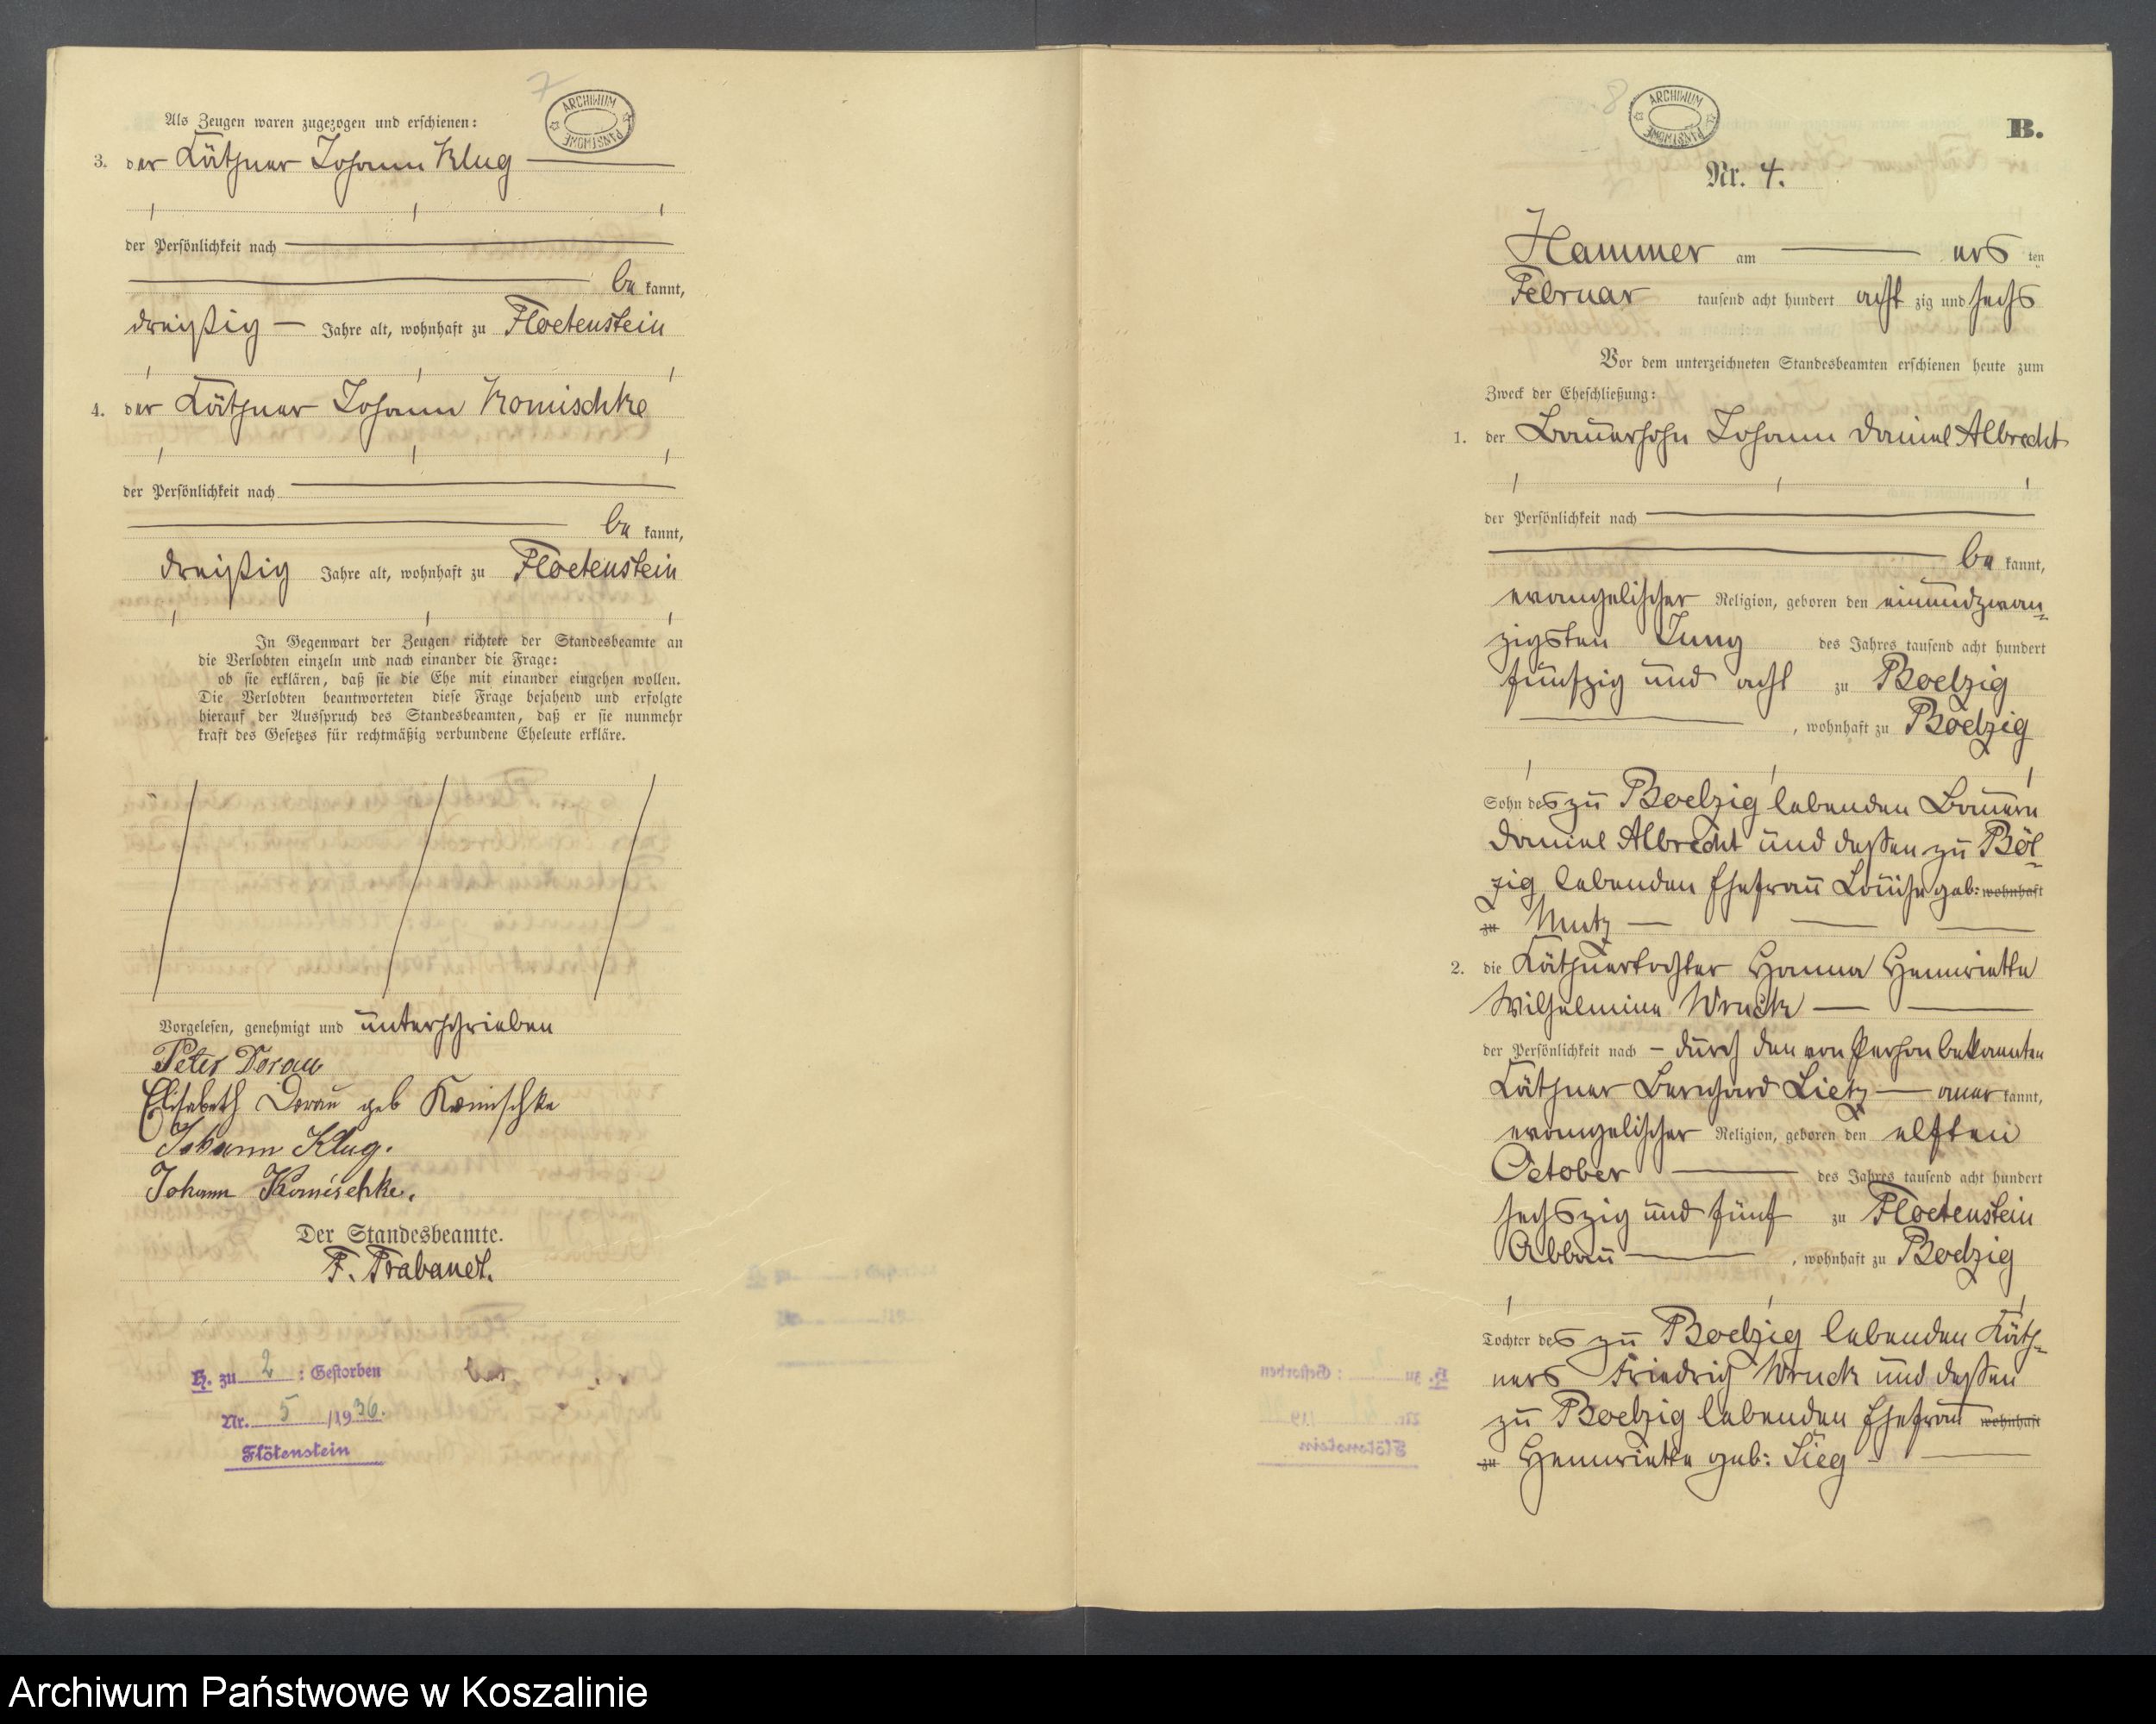 7
ARCHIWUM PAŃSTWOWE
Als Zeugen waren zugezogen und erschienen:
3. der Käthner Johann Klug
der Persönlichkeit nach
be kannt,
dreißig Jahre alt, wohnhaft zu Floetenstein
4. der Käthner Johann Komischke
der Persönlichkeit nach
be kannt,
dreißig Jahre alt, wohnhaft zu Floetenstein
In Gegenwart der Zeugen richtete der Standesbeamte an
die Verlobten einzeln und nach einander die Frage:
ob sie erklären, daß sie die Ehe mit einander eingehen wollen.
Die Verlobten beantworteten diese Frage bejahend und erfolgte
hierauf der Ausspruch des Standesbeamten, daß er sie nunmehr
kraft des Gesetzes für rechtmäßig verbundene Eheleute erkläre.
Vorgelesen, genehmigt und unterschrieben
Peter Dorau
Elisabeth Dorau geb Komischke
Johann Klug.
Johann Komischke.
Der Standesbeamte.
F. Brabandt.
H. zu 2 : Gestorben
Nr. 5 /1936.
Flötenstein
8.
ARCHIWUM PAŃSTWOWE
B.
Nr. 4.
Hammer am ers ten
Februar tausend acht hundert acht zig und sechs
Vor dem unterzeichneten Standesbeamten erschienen heute zum
Zweck der Eheschließung:
1. der Bauersohn Johann Daniel Albrecht
der Persönlichkeit nach
be kannt,
evangelischer Religion, geboren den einundzwan-
zigsten Juny des Jahres tausend acht hundert
fünfzig und acht zu Boelzig
, wohnhaft zu Boelzig
Sohn des zu Boelzig lebenden Bauern
Daniel Albrecht und dessen zu Böl-
zig lebenden Ehefrau Louise geb: wohnhaft
zu Mutz
2. die Käthnertochter Hanna Hennriette
Wilhelmine Wruck
der Persönlichkeit nach - durch den von Person bekannten
Käthner Bernhard Lietz aner kannt,
evangelischer Religion, geboren den elften
October des Jahres tausend acht hundert
sechszig und fünf zu Floetenstein
Abbau , wohnhaft zu Boelzig
Tochter des zu Boelzig lebenden Käth-
ners Friedrich Wruck und dessen
zu Boelzig lebenden Ehefrau wohnhaft
zu Hennriette geb: Sieg
Archiwum Państwowe w Koszalinie